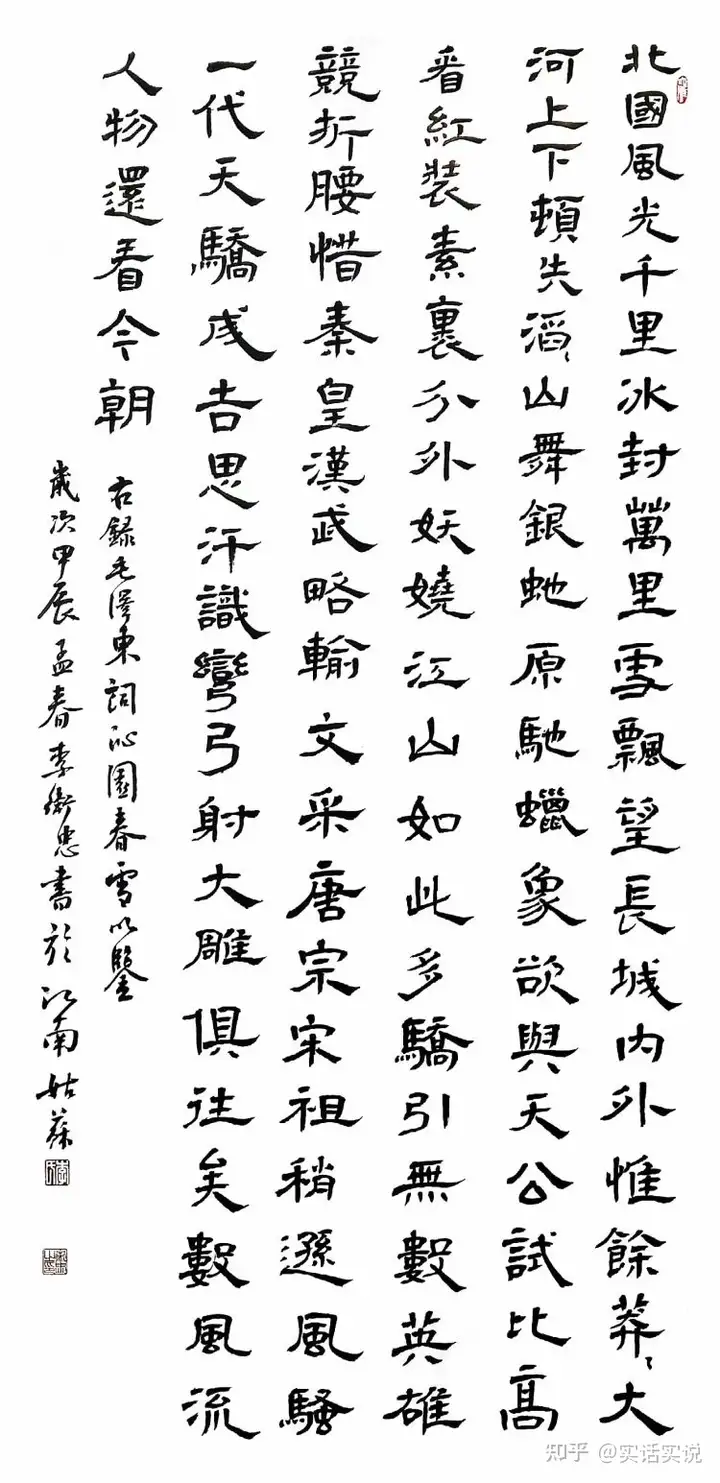 北國風光千里冰封萬里雪飄望長城內外惟餘莽〻大
河上下頓失滔〻山舞銀虵原馳蠟象欲與天公試比高
看紅裝素裹分外妖嬈江山如此多驕引無數英雄
競折腰惜秦皇漢武略輸文采唐宗宋祖稍遜風騷
一代天驕成吉思汗識彎弓射大雕俱往矣數風流
人物還看今朝
右録毛澤東詞沁園春雪以鑒
歲次甲辰孟春李衛忠書於江南姑蘇
知乎 @实话实说